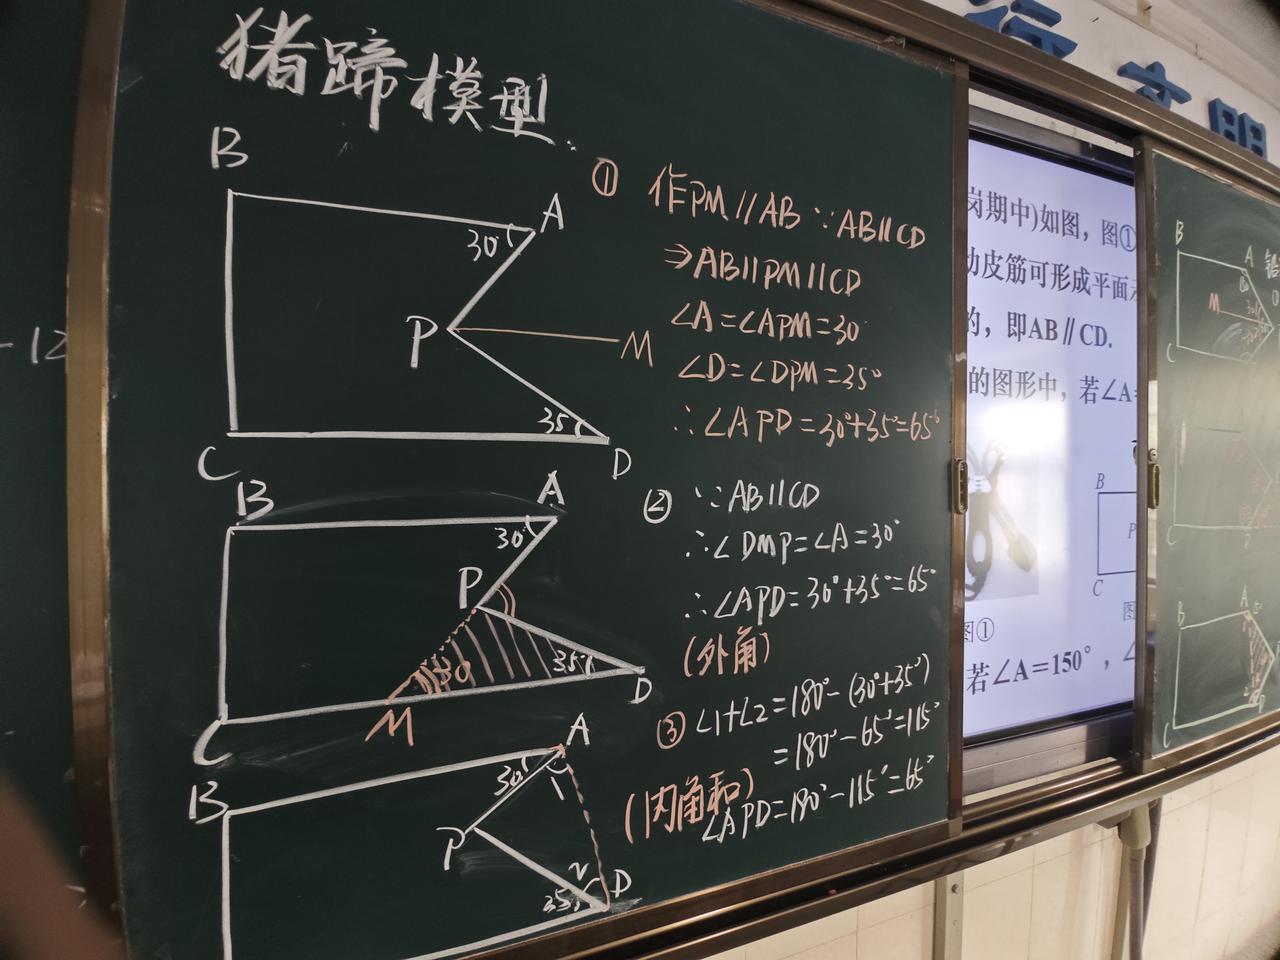 猪蹄模型.
B
A
30°
P
M
35°
C
D
① 作PM∥AB ∵AB∥CD
⇒AB∥PM∥CD
∠A=∠APM=30
∠D=∠DPM=35°
∴∠APD=30°+35°=65°
B
A
30°
P
30
35°
D
C
M
② ∵AB∥CD
∴∠DMP=∠A=30°
∴∠APD=30°+35°=65°
(外角)
A
B
30°
1
P
2
35°
D
③ ∠1+∠2=180°-(30°+35°)
=180°-65°=115°
(内角和)
∠APD=180°-115°=65°
-12
文明
岗期中)如图，图①
皮筋可形成平面
的，即AB∥CD.
的图形中，若∠A=
B
P
C
图①
若∠A=150°，∠
B
A
M
C
D
B
A
C